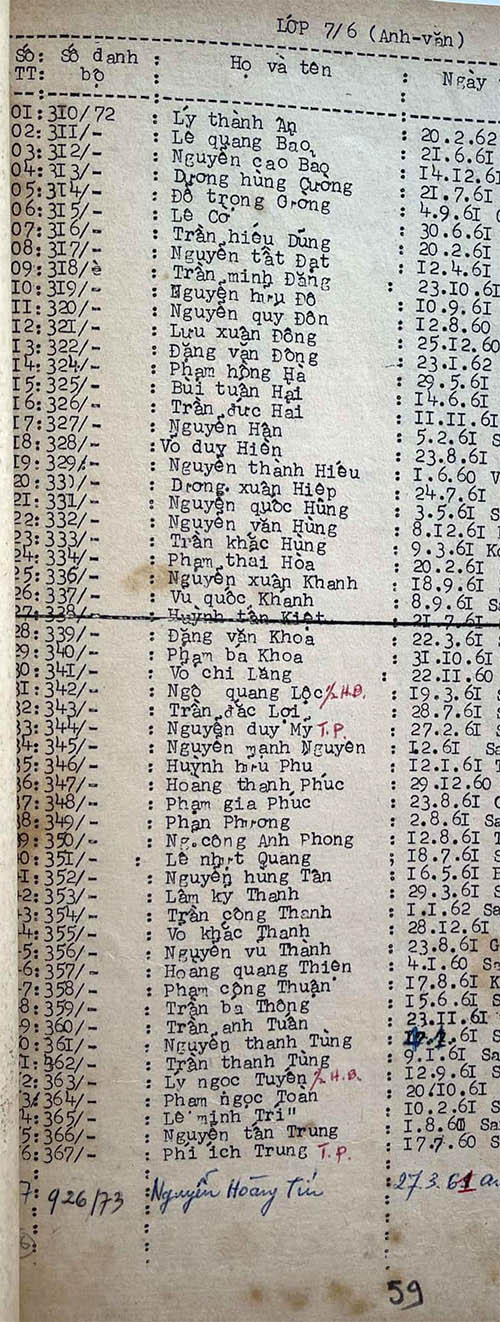 LỚP 7/6 (Anh-văn)
Số: Số danh : Họ và tên : Ngày
TT: bộ
01: 310/72 : Lý thành Ân : 20.2.62
02: 311/- : Lê quang Bảo : 21.6.61
03: 312/- : Nguyễn cao Bảo : 14.12.61
04: 313/- : Dương hùng Cường : 21.7.61
05: 314/- : Đỗ trọng Cương : 4.9.61
06: 315/- : Lê Cơ : 30.6.61
07: 316/- : Trần hiếu Dũng : 20.2.61
08: 317/- : Nguyễn tất Đạt : 12.4.61
09: 318/- : Trần minh Đăng : 23.10.61
10: 319/- : Nguyễn hữu Độ : 10.9.61
11: 320/- : Nguyễn quy Đôn : 12.8.60
12: 321/- : Lưu xuân Đông : 25.12.60
13: 322/- : Đặng văn Đông : 23.1.62
14: 324/- : Phạm hồng Hà : 29.5.61
15: 325/- : Bùi tuấn Hải : 14.6.61
16: 326/- : Trần đức Hải : 11.11.61
17: 327/- : Nguyễn Hân : 5.2.61 S
18: 328/- : Võ duy Hiền : 23.8.61
19: 329/- : Nguyễn thanh Hiếu : 1.6.60 V
20: 330/- : Dương xuân Hiệp : 24.7.61
21: 331/- : Nguyễn quốc Hùng : 3.5.61 S
22: 332/- : Nguyễn văn Hùng : 8.12.61
23: 333/- : Trần khắc Hùng : 9.3.61
24: 334/- : Phạm thái Hòa : 20.2.61
25: 336/- : Nguyễn xuân Khanh : 18.9.61
26: 337/- : Vũ quốc Khanh : 8.9.61 Sa
27: 338/- : Huỳnh tấn Kiệt : 21.7.61
28: 339/- : Đặng văn Khoa : 22.3.61 S
29: 340/- : Phạm bá Khoa : 31.10.61
30: 341/- : Võ chi Lăng : 22.11.60
31: 342/- : Ngô quang Lộc ½ H.B. : 19.3.61 S
32: 343/- : Trần đắc Lợi : 28.7.61 S
33: 344/- : Nguyễn duy Mỹ T.P. : 27.2.61 S
34: 345/- : Nguyễn mạnh Nguyên : 12.61 Sa
35: 346/- : Huỳnh hữu Phú : 12.1.61 T
36: 347/- : Hoàng thanh Phúc : 29.12.60
37: 348/- : Phạm gia Phúc : 23.8.61
38: 349/- : Phan Phương : 2.8.61 Sa
39: 350/- : Ng.công Anh Phong : 12.8.61 T
40: 351/- : Lê nhựt Quang : 18.7.61 S
41: 352/- : Nguyễn hùng Tân : 16.5.61
42: 353/- : Lâm kỳ Thanh : 29.3.61 S
43: 354/- : Trần công Thanh : 1.1.62 Sa
44: 355/- : Võ khắc Thanh : 28.12.61
45: 356/- : Nguyễn vũ Thành : 23.8.61 G
46: 357/- : Hoàng quang Thiên : 4.1.60 Sa
47: 358/- : Phạm công Thuận : 17.8.61 K
48: 359/- : Trần bá Thông : 15.6.61 S
49: 360/- : Trần anh Tuấn : 23.11.61
50: 361/- : Nguyễn thanh Tùng
51: 362/- : Trần thanh Tùng : 9.1.61 Sa
52: 363/- : Lý ngọc Tuyên ½ H.B. : 12.9.61 S
53: 364/- : Phạm ngọc Toàn : 20.10.61
54: 365/- : Lê minh Trí" : 10.2.61 S
55: 366/- : Nguyễn tấn Trung : 1.8.60 Sai
56: 367/- : Phi ích Trung T.P. : 17.7.60 S
7: 926/73 : Nguyễn Hoàng Tín : 27.3.61
59